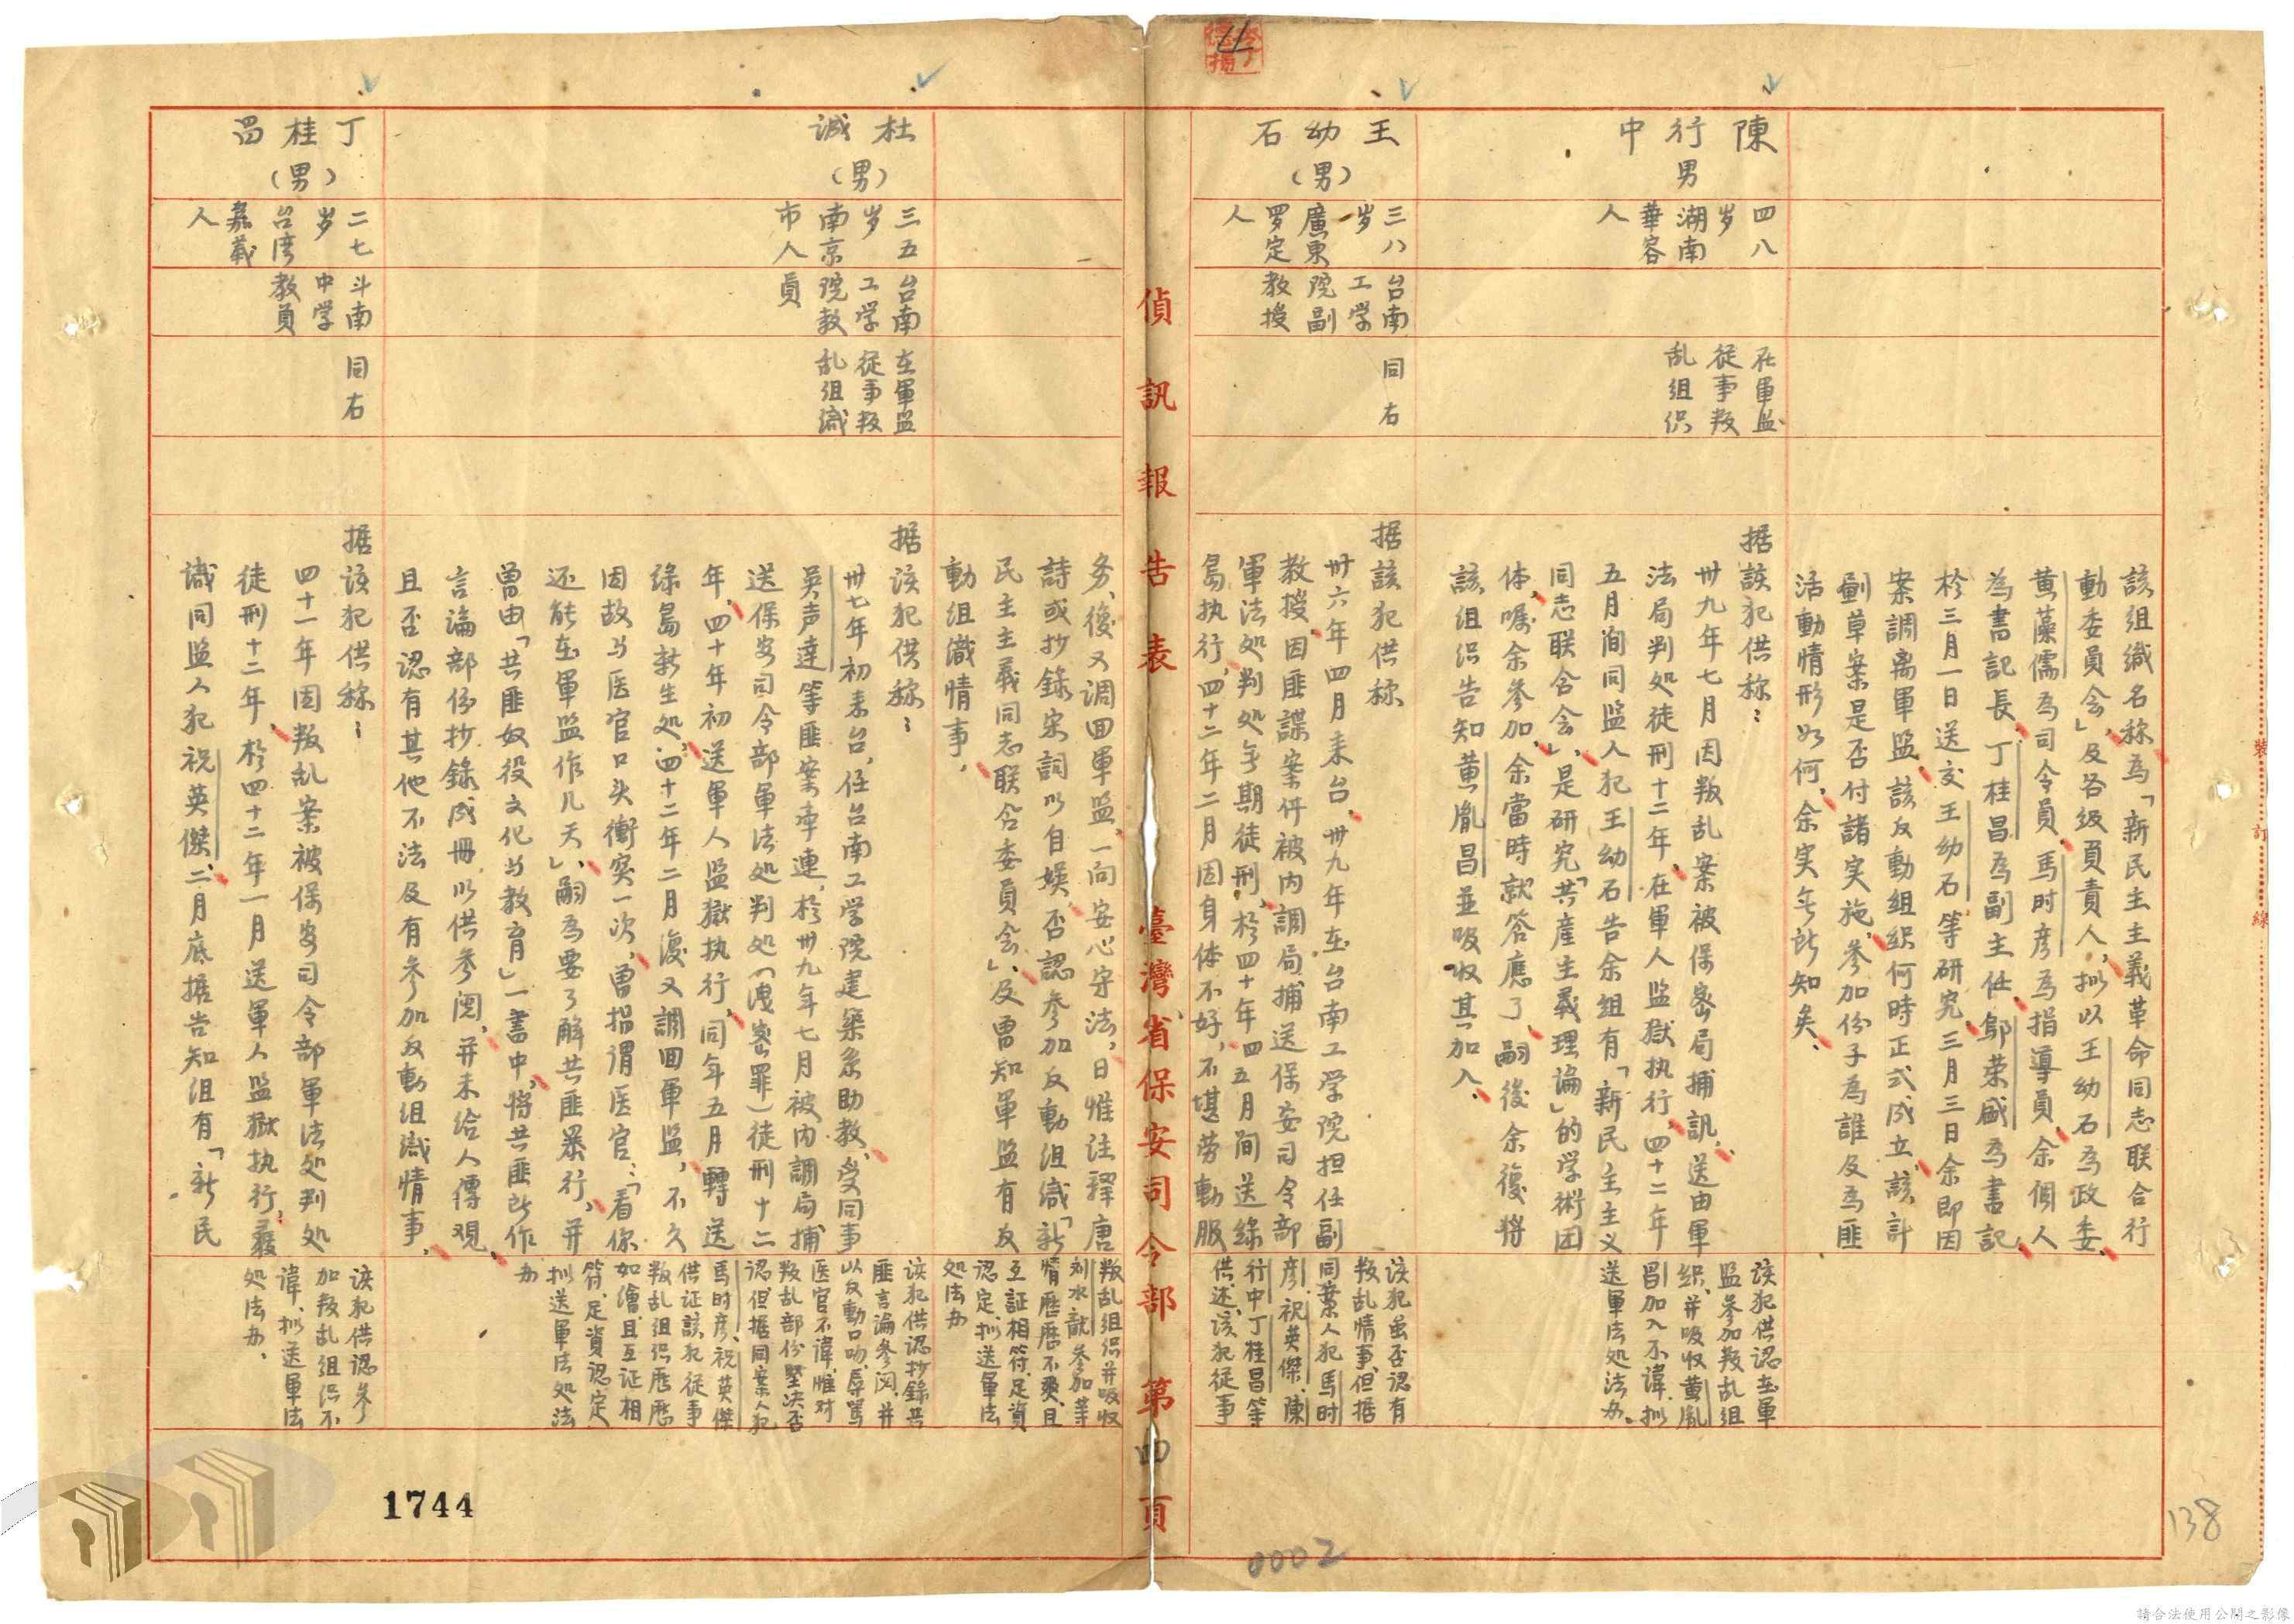 該組織名称為「新民主主義革命同志联合行
動委員会」及各级負責人，拟以王幼石為政委、
黄藻儒為司令員、馬时彦為指導員、余個人
為書記長、丁桂昌為副主任、鄔荣盛為書記、
於三月一日送交王幼石等研究、三月三日余即因
案調离軍監、該反動組织何時正式成立、該計
劃草案是否付諸实施、参加份子為誰及為匪
活動情形如何、余実無所知矣、
陳行中
男
四八
岁
湖南
華容
人
在軍監
從事叛
乱組织
据該犯供称：
卅九年七月因叛乱案被保密局捕訊、送由軍
法局判处徒刑十二年、在軍人監獄执行、四十二年
五月间同監人犯王幼石告余組有「新民主主义
同志联合会」、是研究「共產主義理論」的学術团
体、嘱余参加、余當時就答應了、嗣後余復将
該組织告知黄胤昌並吸收其加入、
該犯供認在軍
監参加叛乱組
织、并吸收黄胤
昌加入不諱、拟
送軍法处法办。
王幼石
（男）
三八
岁
廣東
罗定
人
台南
工学
院副
教授
同右
据該犯供称
卅六年四月来台、卅九年在台南工学院担任副
教授、因匪諜案件被内調局捕送保安司令部
軍法处判处無期徒刑、於四十年四五月间送綠
島执行、四十二年二月因身体不好，不堪劳動服
務、後又調回軍監、一向安心守法，日惟注釋唐
詩或抄錄宋詞以自娱、否認参加反動組織「新
民主主義同志联合委員会」、及曾知軍監有反
動組織情事、
該犯虽否認有
叛乱情事、但据
同案人犯馬时
彦、祝英傑、陳
行中丁桂昌等
供述、該犯從事
叛乱組织并吸收
刘水龍参加等
情歷歷不爽、且
互証相符、足資
認定、拟送軍法
处法办
偵訊報告表 臺灣省保安司令部 第四頁
杜誠
（男）
三五
岁
南京
市人
台南
工学
院教
員
在軍監
從事叛
乱組織
据該犯供称：
卅七年初来台，任台南工学院建築系助教、受同事
吳声達等匪案牽連，於卅九年七月被内調局捕
送保安司令部軍法处判处（洩密罪）徒刑十二
年、四十年初送軍人監獄执行，同年五月轉送
綠島新生处、四十二年二月復又調回軍監，不久
因故与医官口头衝突一次，曾指谓医官：「看你
还能在軍監作几天」、嗣為要了解共匪暴行，并
曾由「共匪奴役文化与教育」一書中，将共匪所作
言論部份抄錄成冊，以供参阅，并未给人傳观、
且否認有其他不法及有参加反動組織情事、
該犯供認抄錄共
匪言論参阅、并
以反動口吻，辱罵
医官不諱，惟对
叛乱部份堅决否
認，但据同案人犯
馬时彦、祝英傑
供証該犯從事
叛乱組织歷歷
如繪，且互証相
符、足資認定、
拟送軍法处法
办
丁桂昌
（男）
二七
岁
台湾
嘉義
人
斗南
中学
教員
同右
据該犯供称：
四十一年因叛乱案被保安司令部軍法处判处
徒刑十二年、於四十二年一月送軍人監獄执行、爰
識同監人犯祝英傑、二月底据告知組有「新民
該犯供認参
加叛乱組织不
諱，拟送軍法
处法办、
1744
0002
138
裝訂線
請合法使用公開之影像